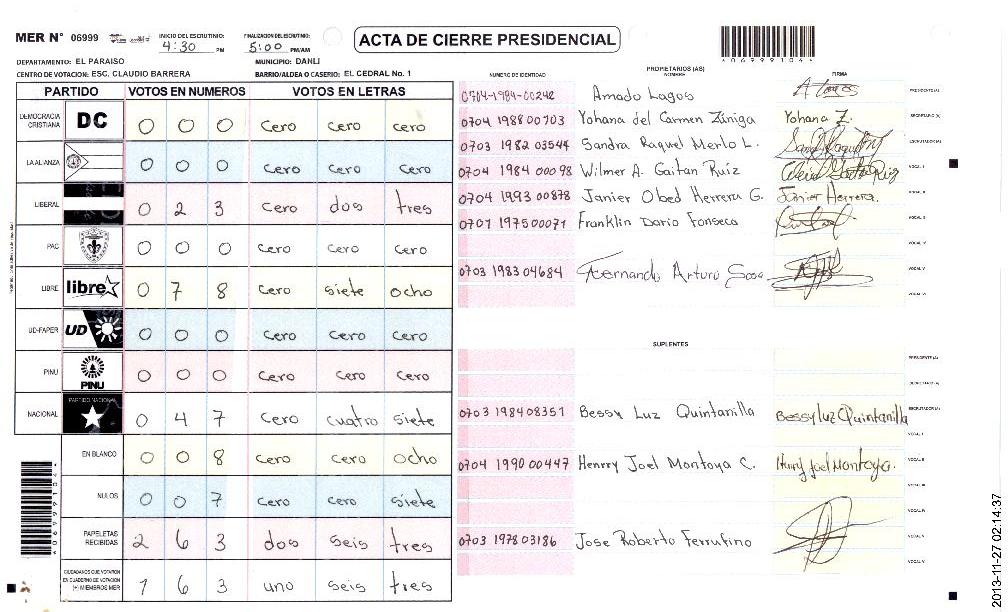 MER N° 06999
INICIO DEL ESCRUTINIO: 4:30 PM
FINALIZACION DEL ESCRUTINIO: 5:00 PM/AM
ACTA DE CIERRE PRESIDENCIAL
*06999104*
DEPARTAMENTO: EL PARAISO
MUNICIPIO: DANLI
CENTRO DE VOTACION: ESC. CLAUDIO BARRERA
BARRIO/ALDEA O CASERIO: EL CEDRAL No. 1
PARTIDO VOTOS EN NUMEROS VOTOS EN LETRAS
DEMOCRACIA CRISTIANA DC 0 0 0 cero cero cero
LA ALIANZA 0 0 0 cero cero cero
LIBERAL 0 2 3 cero dos tres
PAC 0 0 0 cero cero cero
LIBRE libre 0 7 8 cero siete ocho
UD-FAPER UD 0 0 0 cero cero cero
PINU PINU 0 0 0 cero cero cero
NACIONAL PARTIDO NACIONAL 0 4 7 cero cuatro siete
EN BLANCO 0 0 8 cero cero ocho
NULOS 0 0 7 cero cero siete
PAPELETAS RECIBIDAS 2 6 3 dos seis tres
CIUDADANOS QUE VOTARON EN CUADERNO DE VOTACION (+) MIEMBROS MER 1 6 3 uno seis tres
NUMERO DE IDENTIDAD PROPIETARIOS (AS) NOMBRE FIRMA
0704-1984-00242 Amado Lagos PRESIDENTE(A)
0704 1988 00703 Yohana del Carmen Zúniga Yohana Z. SECRETARIO(A)
0703 1982 03544 Sandra Raquel Merlo L. ESCRUTADOR(A)
0704 1984 00098 Wilmer A. Gaitan Ruiz VOCAL I
0704 1993 00878 Janier Obed Herrera G. Janier Herrera. VOCAL II
0707 1975 00071 Franklin Dario Fonseca VOCAL III
VOCAL IV
0703 1983 04684 Fernando Arturo Sosa VOCAL V
VOCAL VI
SUPLENTES
PRESIDENTE (A)
SECRETARIO(A)
0703 1984 08351 Bessy Luz Quintanilla Bessy Luz Quintanilla ESCRUTADOR(A)
VOCAL I
0704 1990 00447 Henrry Joel Montoya C. Henrry Joel Montoya. VOCAL II
VOCAL III
VOCAL IV
0703 1978 03186 Jose Roberto Ferrufino VOCAL V
VOCAL VI
2013-11-27 02:14:37